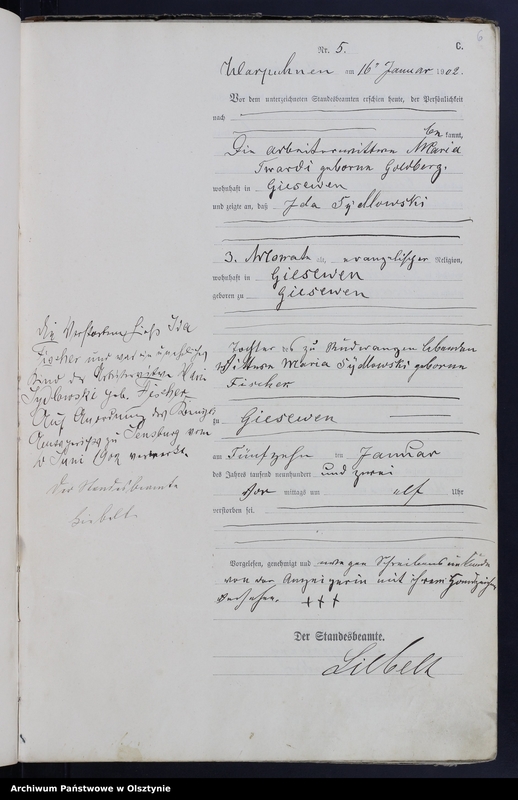 6
Nr. 5.
C.
Warpuhnen am 16t Januar 1902.
Vor dem unterzeichneten Standesbeamten erschien heute, der Persönlichkeit
nach
be kannt,
Die Arbeiterwittwe Maria
Twardi geborne Goldberg.
wohnhaft in Giesewen
und zeigte an, daß Ida Sydlowski
3. Monate alt, evangelischer Religion,
wohnhaft in Giesewen
geboren zu Giesewen
Tochter der zu Lebenden
Wittwe Maria Sydlowski geborne
Fischer
zu Giesewen
am Fünfzehn ten Januar
des Jahres tausend neunhundert und zwei
Vor mittags um elf Uhr
verstorben sei.
Vorgelesen, genehmigt und wegen Schreibensunkunde
von der Anzeigerin mit ihrem Handzeichen
versehen. +++
Der Standesbeamte.
Liebelt
Die Verstorbene hieß Ida
Fischer und war ein uneheliches
Kind der Arbeiterwitwe
Sydlowski geb. Fischer
Auf Anordnung des Königl.
Amtsgerichts zu Sensburg vom
Juni vermerkt.
Der Standesbeamte
Liebelt.
Archiwum Państwowe w Olsztynie